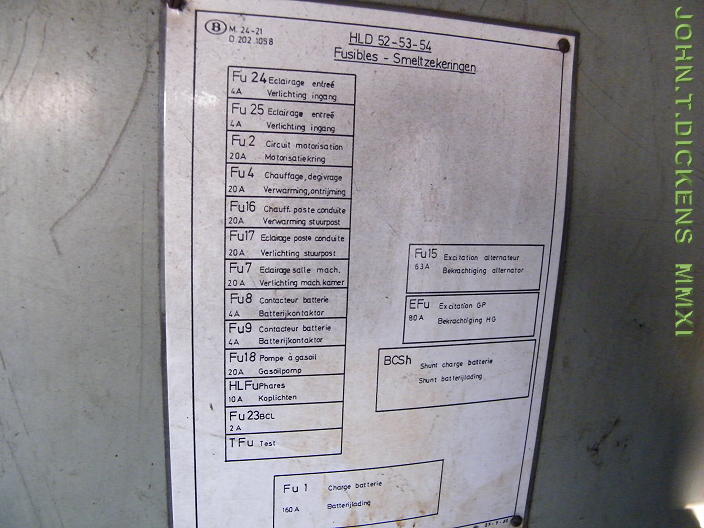 B M. 24-21
D 202.1058
HLD 52-53-54
Fusibles - Smeltzekeringen
Fu 24 Eclairage entreé
4A Verlichting ingang
Fu 25 Eclairage entreé
4A Verlichting ingang
Fu 2 Circuit motorisation
20A Motorisatiekring
Fu 4 Chauffage, degivrage
20A Verwarming, ontrijming
Fu16 Chauff. poste conduite
20A Verwarming stuurpost
Fu17 Eclairage poste conduite
20A Verlichting stuurpost
Fu 7 Eclairage salle mach.
20A Verlichting mach.kamer
Fu 8 Contacteur batterie
4A Batterijkontaktor
Fu 9 Contacteur batterie
4A Batterijkontaktor
Fu18 Pompe à gasoil
20A Gasoilpomp
HLFu Phares
10A Koplichten
Fu 23 BCL
2A
TFu Test
Fu 1 Charge batterie
160A Batterijlading
Fu15 Excitation alternateur
63A Bekrachtiging alternator
EFu Excitation GP
80A Bekrachtiging HG
BCSh Shunt charge batterie
Shunt batterijlading
JOHN.T.DICKENS MMXI